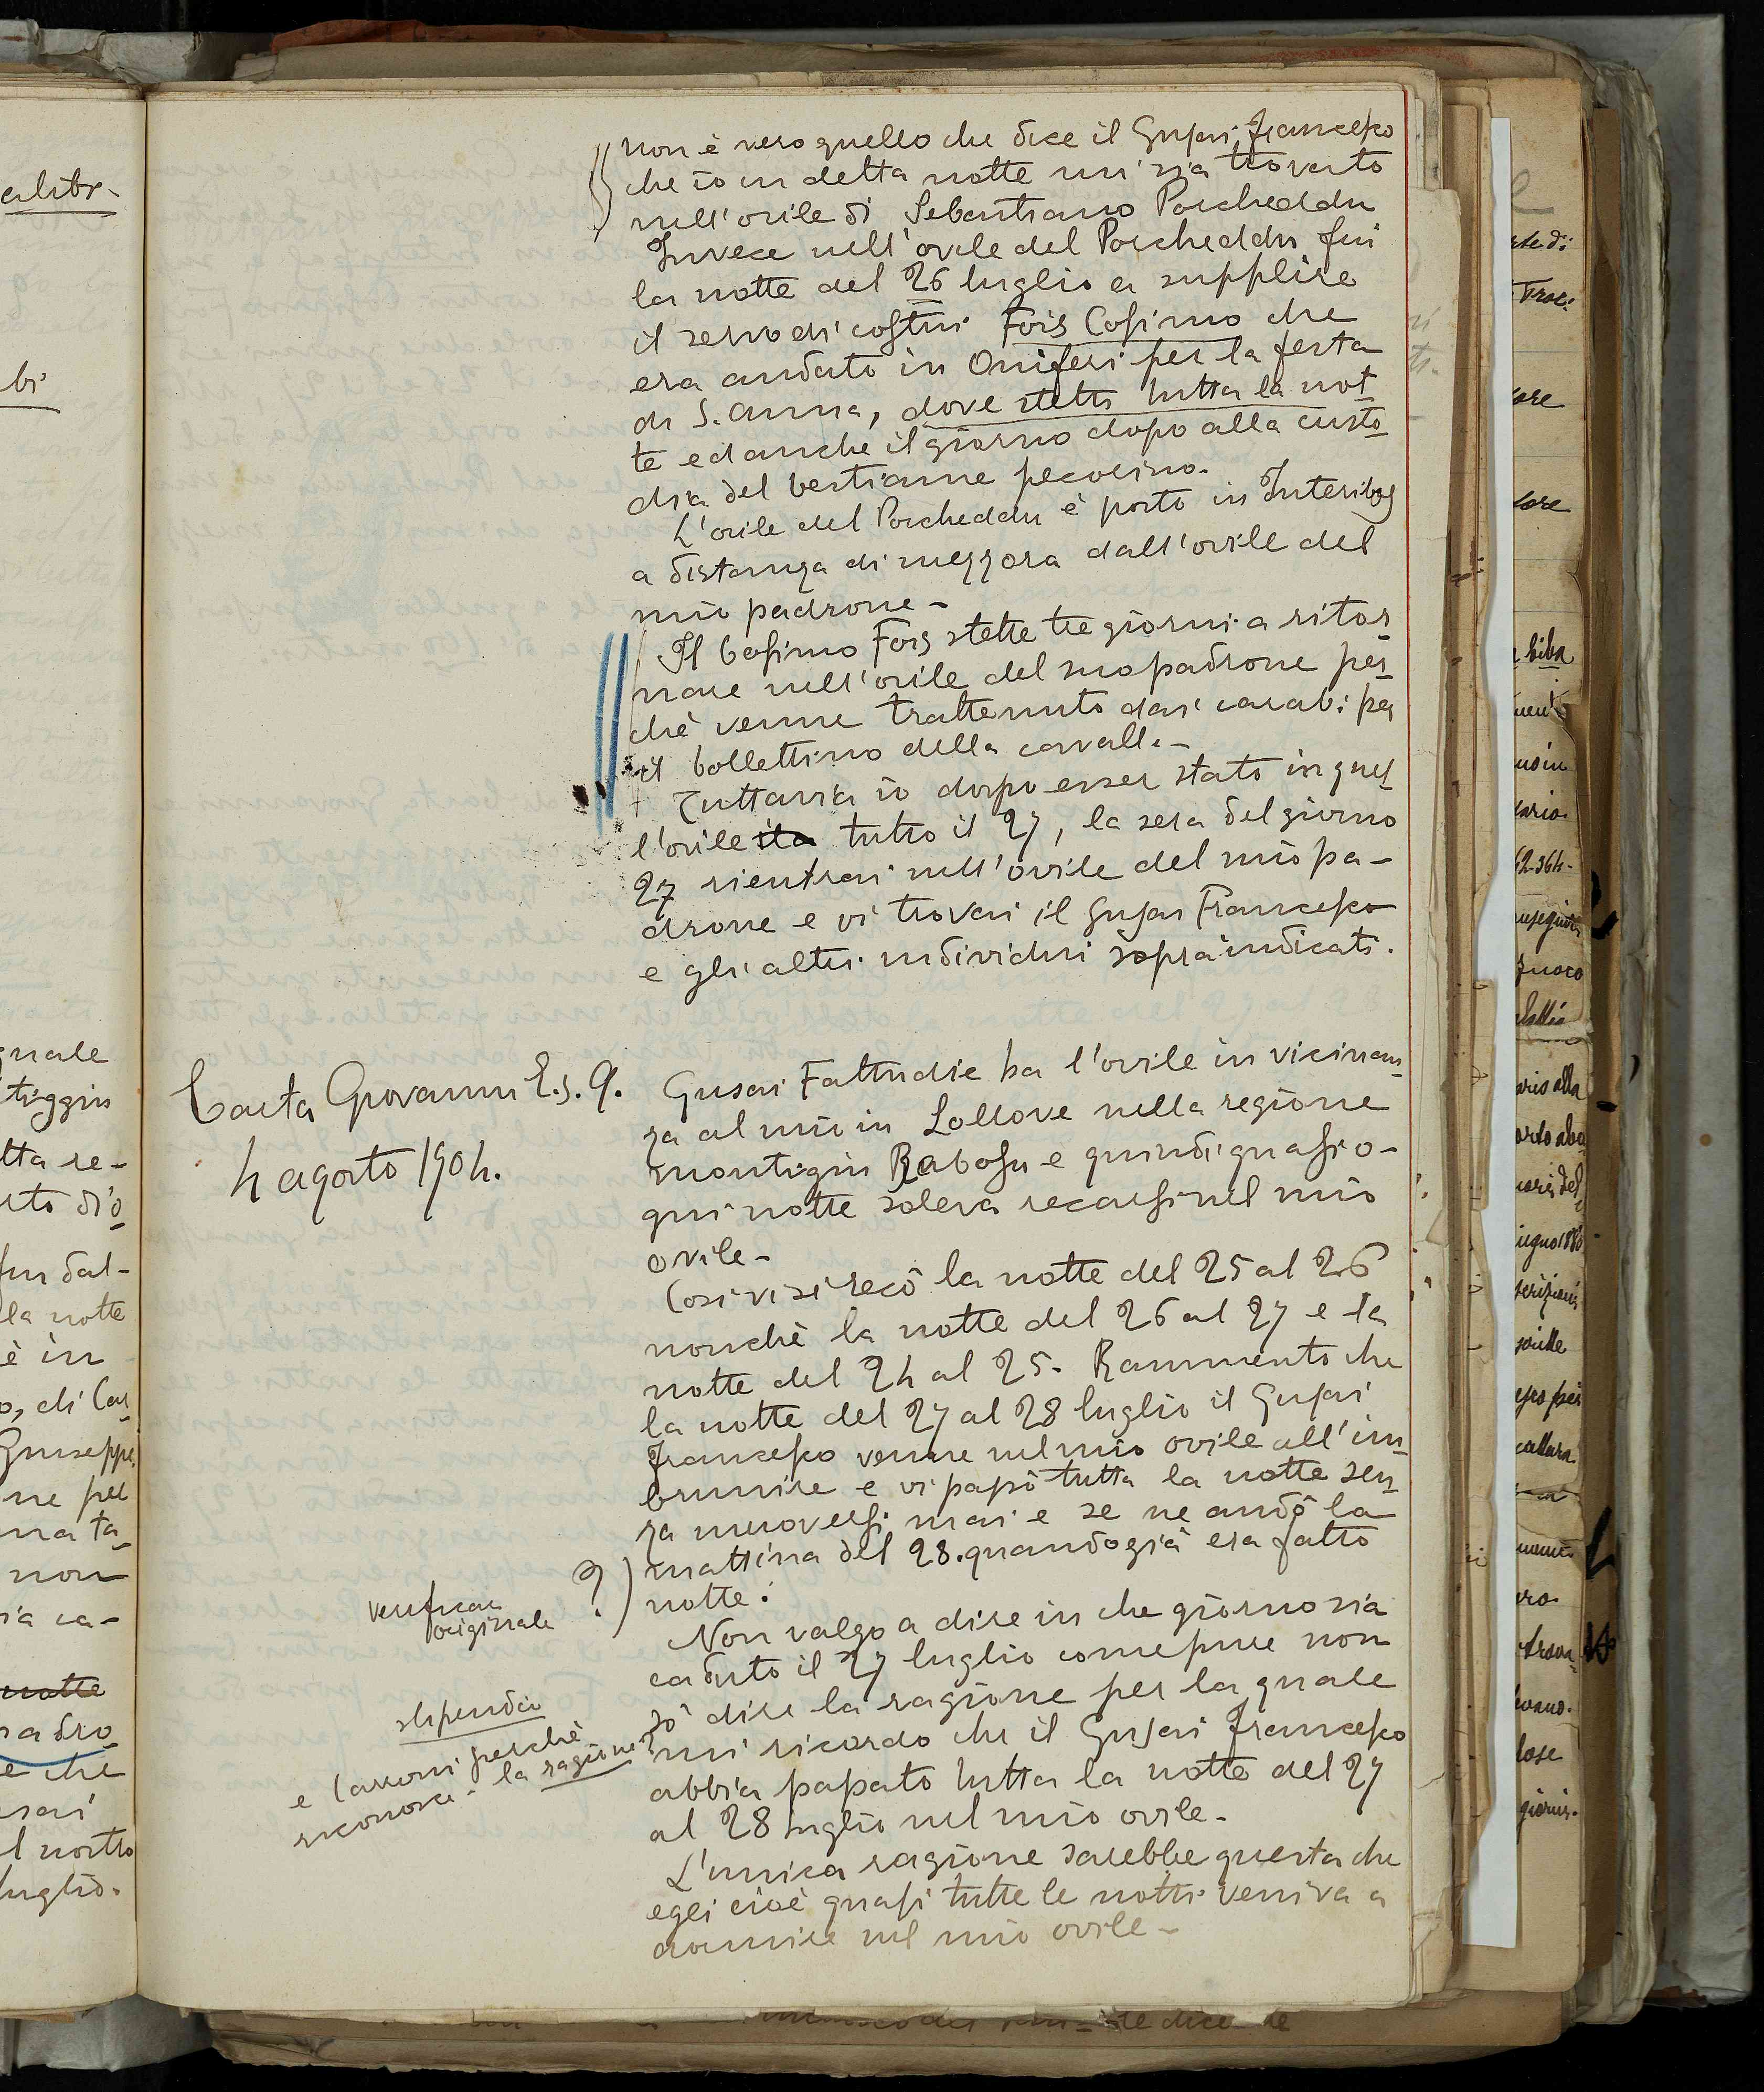 non è vero quello che dice il Gusai Francesco
che io in detta notte mi sia trovato
nell'ovile di Sebastiano Porcheddu
Invece nell'ovile del Porcheddu fui
la notte del 26 luglio a supplire
il servo di costui Fois Cosimo che
era andato in Oniferi per la festa
di S. Anna, dove stetti tutta la not
te ed anche il giorno dopo alla custo
dia del bestiame pecorino.
L'ovile del Porcheddu è posto in
a distanza di mezzora dall'ovile del
mio padrone -
Il Cosimo Fois stette tre giorni a ritor
nare nell'ovile del suo padrone per
chè venne trattenuto dai carabi. per
il bollettino della cavalla -
Tuttavia io dopo esser stato in quel
l'ovile tutto il 27, la sera del giorno
27 rientrai nell'ovile del mio pa-
drone e vi trovai il Gusai Francesco
e gli altri individui sopraindicati.
Carta Giovanni E. s. G.
4 agosto 1904.
Gusai Fattudie ha l'ovile in vicinan
za al mio in Lollove nella regione
montigiu Rabosu e quindi quasi o-
gni notte soleva recarsi nel mio
ovile -
Così vi si recò la notte del 25 al 26
nonchè la notte del 26 al 27 e la
notte del 24 al 25. Rammento che
la notte del 27 al 28 luglio il Gusai
Francesco venne nel mio ovile all'im
brunire e vi passò tutta la notte sen
za muoversi mai e se ne andò la
mattina del 28. quando già era fatto
notte.
? )
verificare
originale
Non valgo a dire in che giorno sia
caduto il 27 luglio come pure non
sò dire la ragione per la quale
mi ricordo che il Gusai Francesco
abbia passato tutta la notte del 27
al 28 luglio nel mio ovile -
stipendio
e Cassoni perchè
la ragione?
riconosce -
L'unica ragione sarebbe questa che
egli cioè quasi tutte le notti veniva a
dormire nel mio ovile -